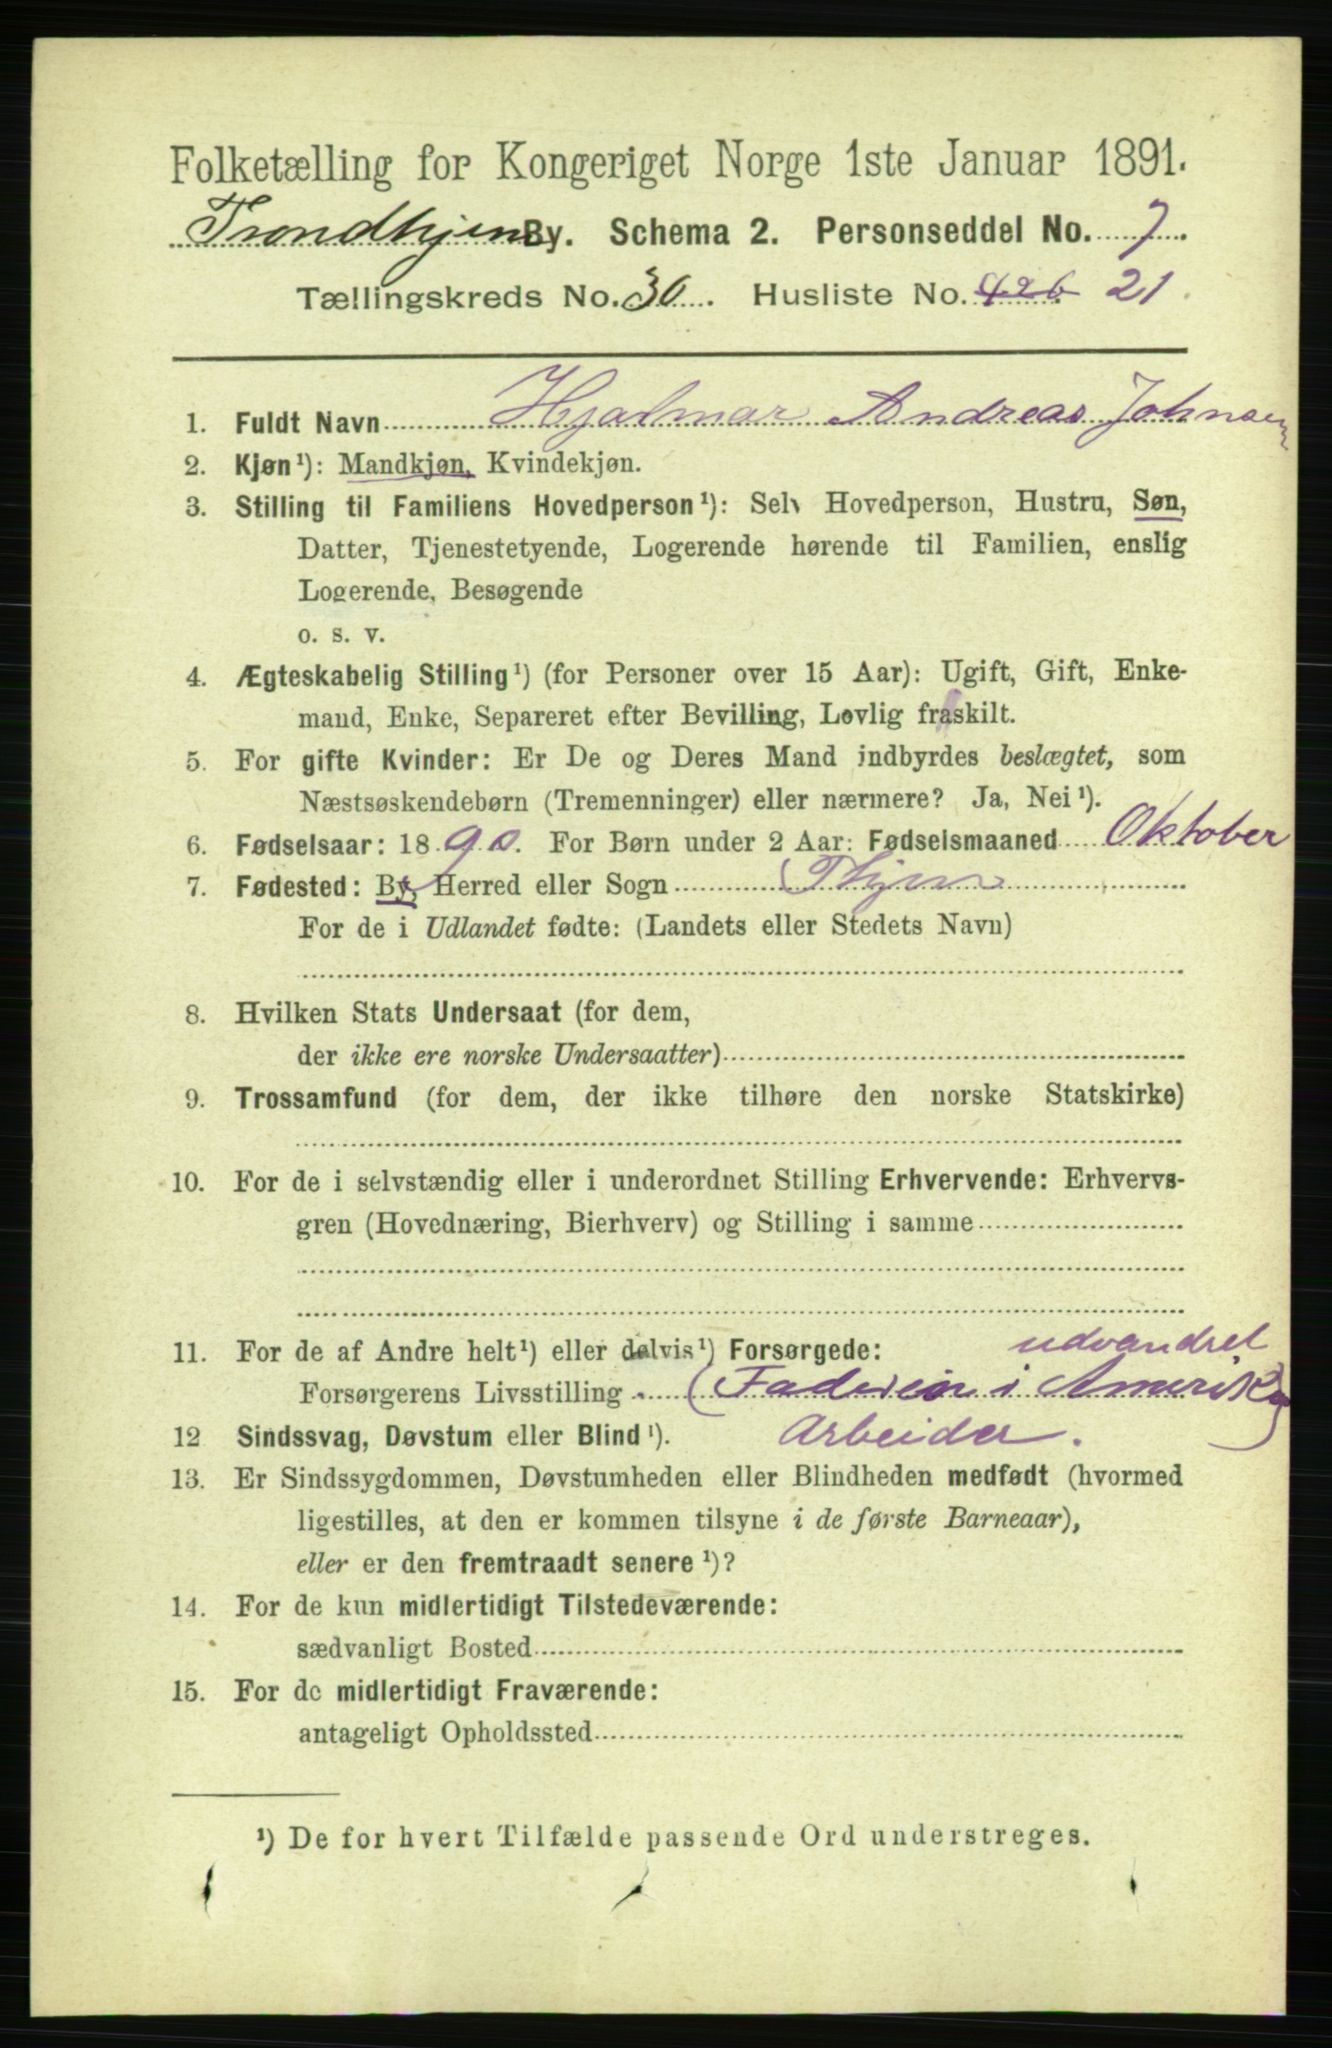 Folketælling for Kongeriget Norge 1ste Januar 1891.
Trondhjem By. Schema 2. Personseddel No. 7.
Tællingskreds No. 30. Husliste No. 426 21
1. Fuldt Navn Hjalmar Andreas Johnsen
2. Kjøn¹): Mandkjøn, Kvindekjøn.
3. Stilling til Familiens Hovedperson¹): Selv Hovedperson, Hustru, Søn,
Datter, Tjenestetyende, Logerende hørende til Familien, enslig
Logerende, Besøgende
o. s. v.
4. Ægteskabelig Stilling¹) (for Personer over 15 Aar): Ugift, Gift, Enke-
mand, Enke, Separeret efter Bevilling, Lovlig fraskilt.
5. For gifte Kvinder: Er De og Deres Mand indbyrdes beslægtet, som
Næstsøskendebørn (Tremenninger) eller nærmere? Ja, Nei¹).
6. Fødselsaar: 1890. For Børn under 2 Aar: Fødselsmaaned Oktober
7. Fødested: By, Herred eller Sogn Thjem
For de i Udlandet fødte: (Landets eller Stedets Navn)
8. Hvilken Stats Undersaat (for dem,
der ikke ere norske Undersaatter)
9. Trossamfund (for dem, der ikke tilhøre den norske Statskirke)
10. For de i selvstændig eller i underordnet Stilling Erhvervende: Erhvervs-
gren (Hovednæring, Bierhverv) og Stilling i samme
11. For de af Andre helt¹) eller delvis¹) Forsørgede: udvandret
Forsørgerens Livsstilling (Faderen i Amerika)
12 Sindssvag, Døvstum eller Blind¹). Arbeider.
13. Er Sindssygdommen, Døvstumheden eller Blindheden medfødt (hvormed
ligestilles, at den er kommen tilsyne i de første Barneaar),
eller er den fremtraadt senere¹)?
14. For de kun midlertidigt Tilstedeværende:
sædvanligt Bosted
15. For de midlertidigt Fraværende:
antageligt Opholdssted
¹) De for hvert Tilfælde passende Ord understreges.